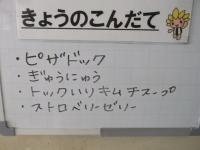 きょうのこんだて
・ピザドック
・ぎゅうにゅう
・トックいりキムチスープ
・ストロベリーゼリー